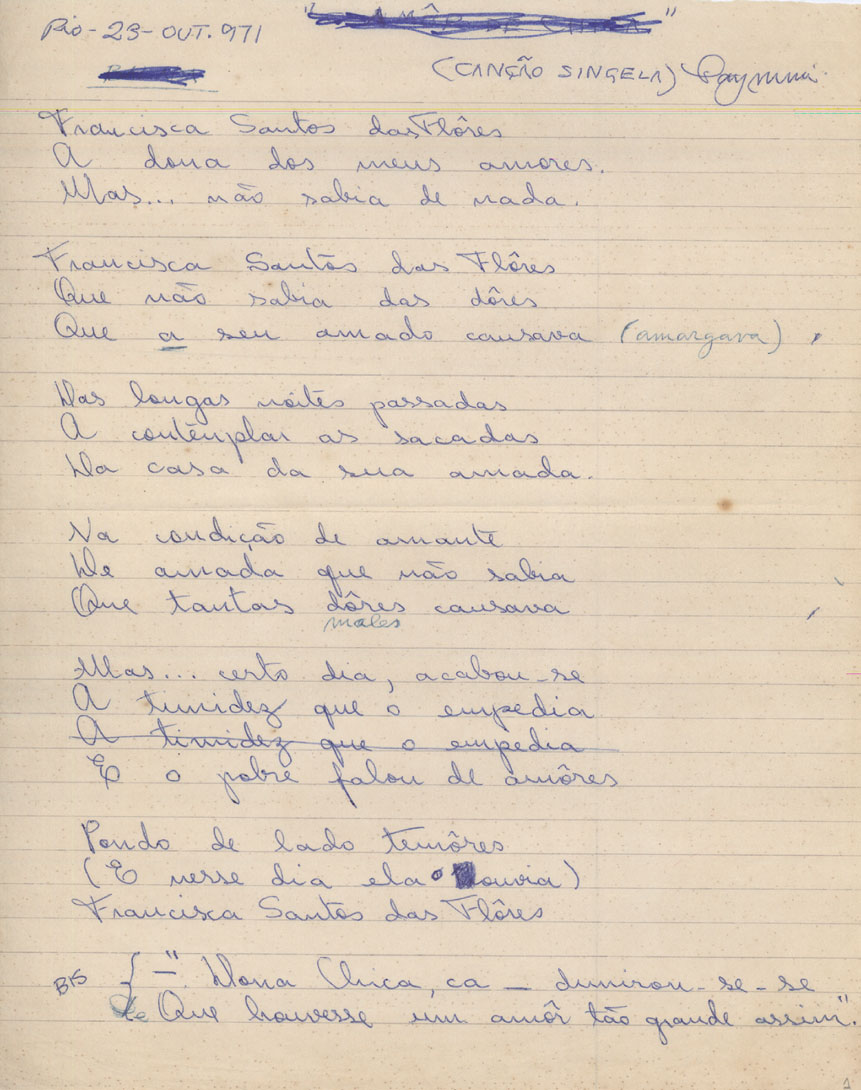 Rio - 23 - OUT. 971
(CANÇÃO SINGELA) Caymmi
Francisca Santos das Flôres
A dona dos meus amores.
Mas... não sabia de nada.
Francisca Santos das Flôres
Que não sabia das dôres
Que a seu amado causava (amargava)
Das longas noites passadas
A contemplar as sacadas
Da casa da sua amada.
Na condição de amante
De amada que não sabia
Que tantas dôres causava
males
Mas... certo dia, acabou-se
A timidez que o empedia
A timidez que o empedia
E o pobre falou de amôres
Pondo de lado temôres
(E nesse dia ela o ouvia)
Francisca Santos das Flôres
BIS { - "Dona Chica, ca - dmirou-se-se
De Que houvesse um amôr tão grande assim".